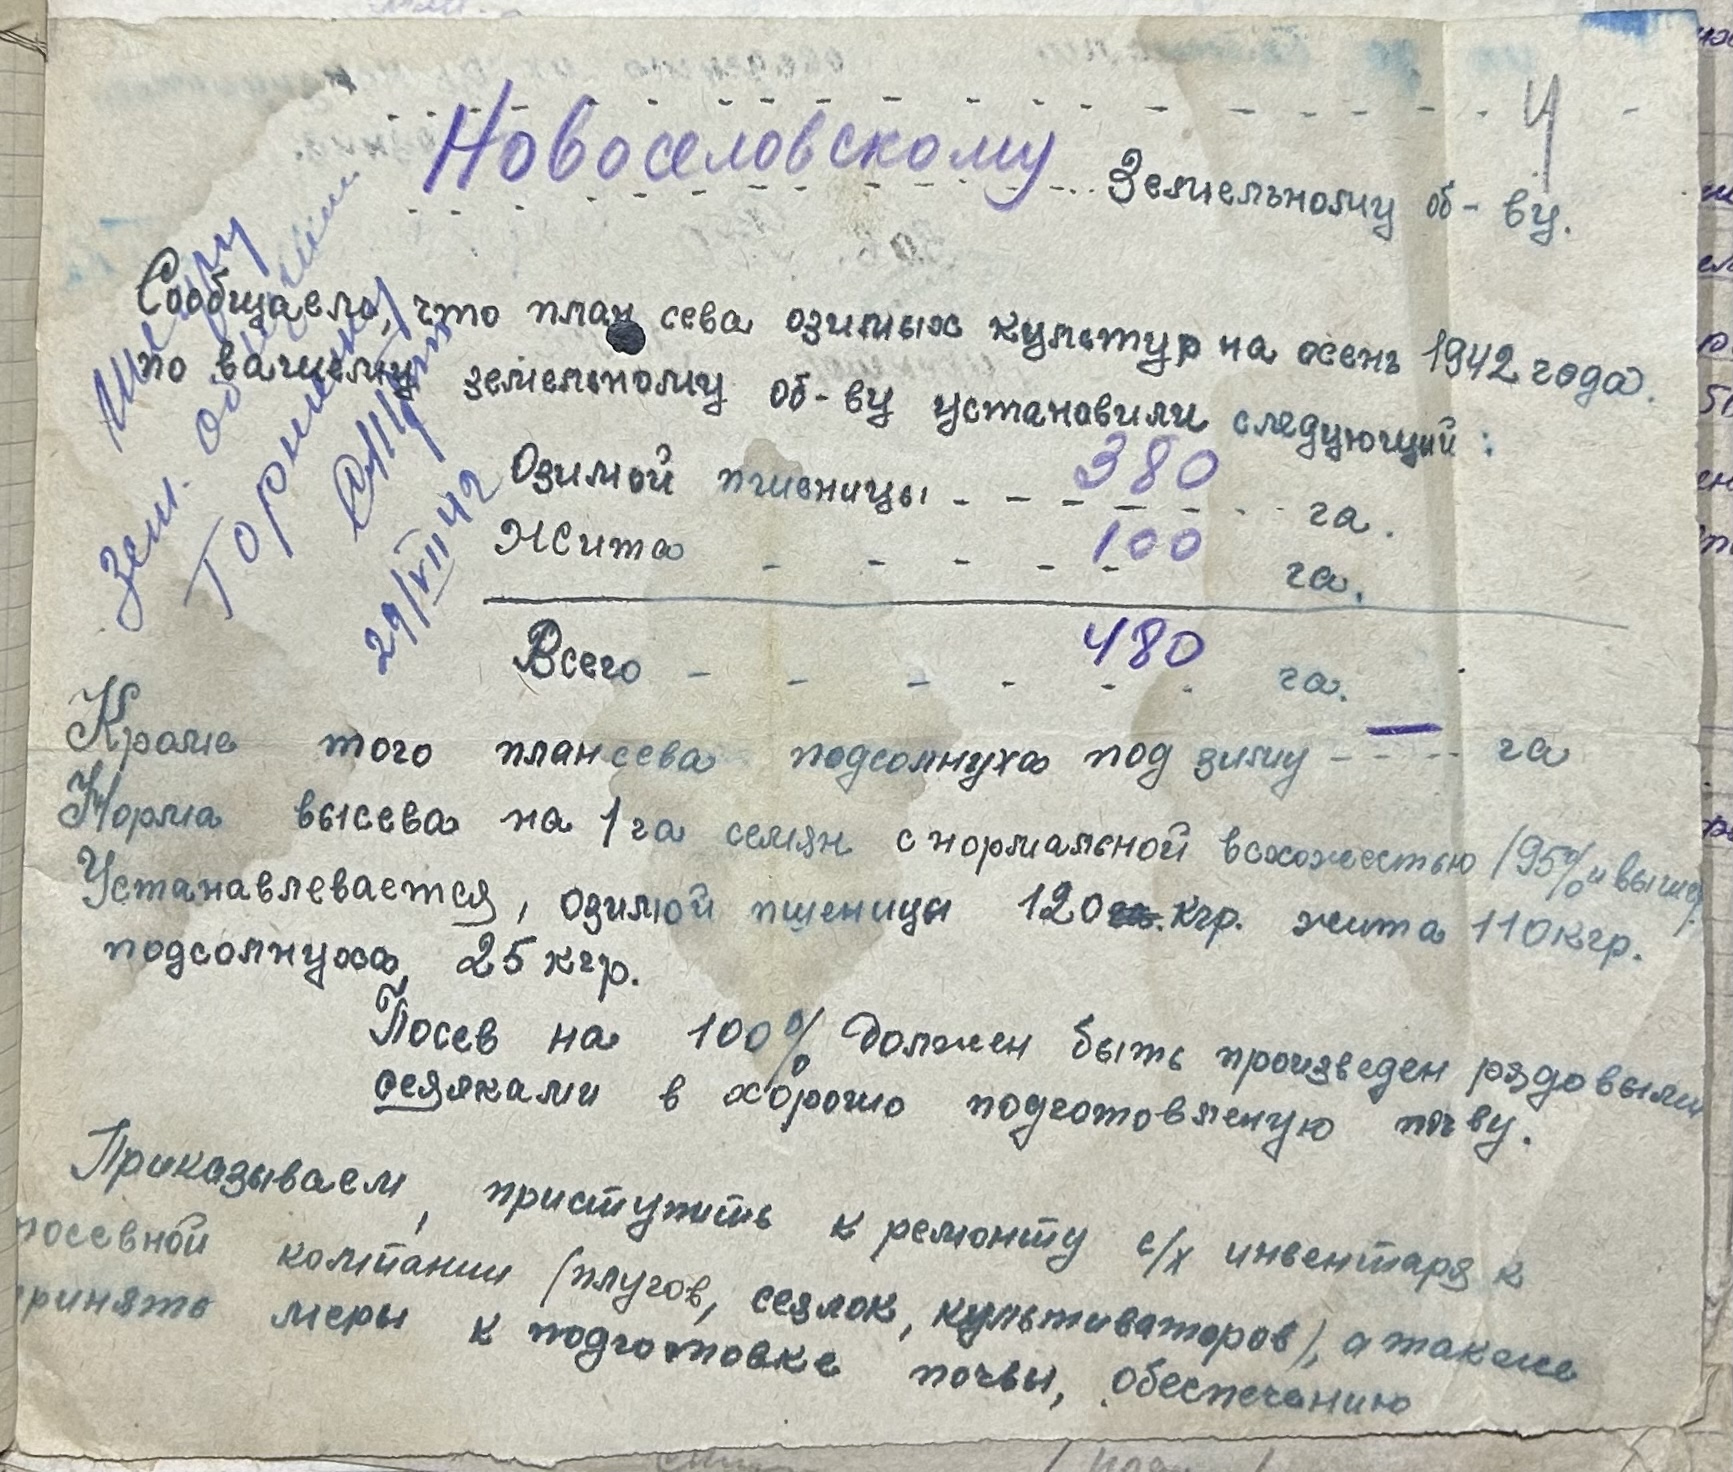 4
Новоселовскому Земельному об-ву.
Сообщаем, что план сева озимых культур на осень 1942 года.
по вашему земельному об-ву установили следующий:
Озимой пшеницы - - - 380 - - га.
Жита - - - - - 100 га.
Всего - - - - - 480 - га.
Кроме того план сева подсолнуха под зиму - - — - - га
Норма высева на 1 га семян с нормальной всхожестью (95% и выше)
Устанавлевается, озимой пшеницы 120 кгр. жита 110 кгр.
подсолнуха, 25 кгр.
Посев на 100% должен быть произведен рядовыми
сеялками в хорошо подготовленую почву.
Приказываем, приступить к ремонту с/х инвентаря к
посевной компании (плугов, сеялок, культиваторов), а также
принять меры к подготовке почвы, обеспечению
зем.
29/VII 42